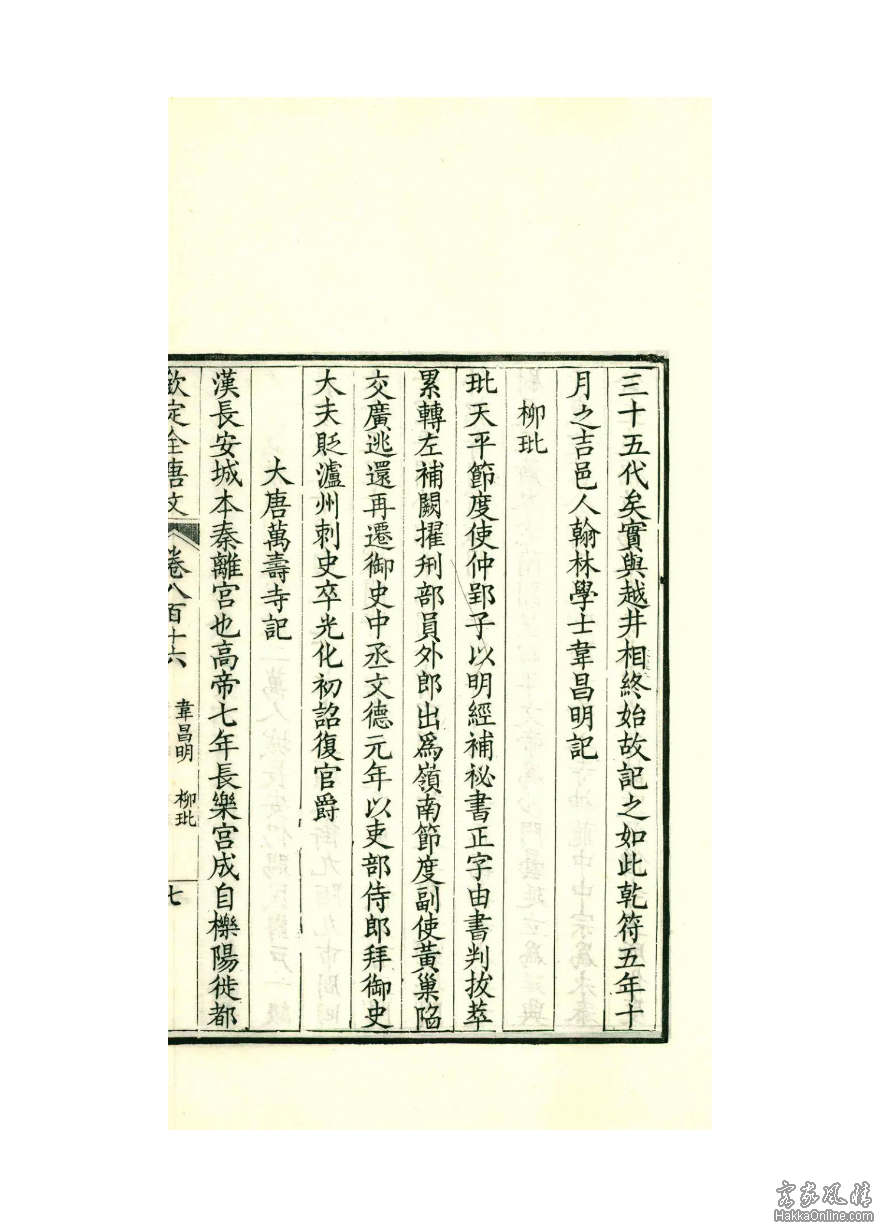 三十五代矣實與越井相終始故記之如此乾符五年十
月之吉邑人翰林學士韋昌明記
柳玭
玭天平節度使仲郢子以明經補祕書正字由書判拔萃
累轉左補闕擢刑部員外郎出爲嶺南節度副使黃巢陷
交廣逃還再遷御史中丞文德元年以吏部侍郎拜御史
大夫貶瀘州刺史卒光化初詔復官爵
大唐萬壽寺記
漢長安城本秦離宮也高帝七年長樂宮成自櫟陽徙都
欽定全唐文 卷八百十六 韋昌明 柳玭 七
客家風情
HakkaOnline.com